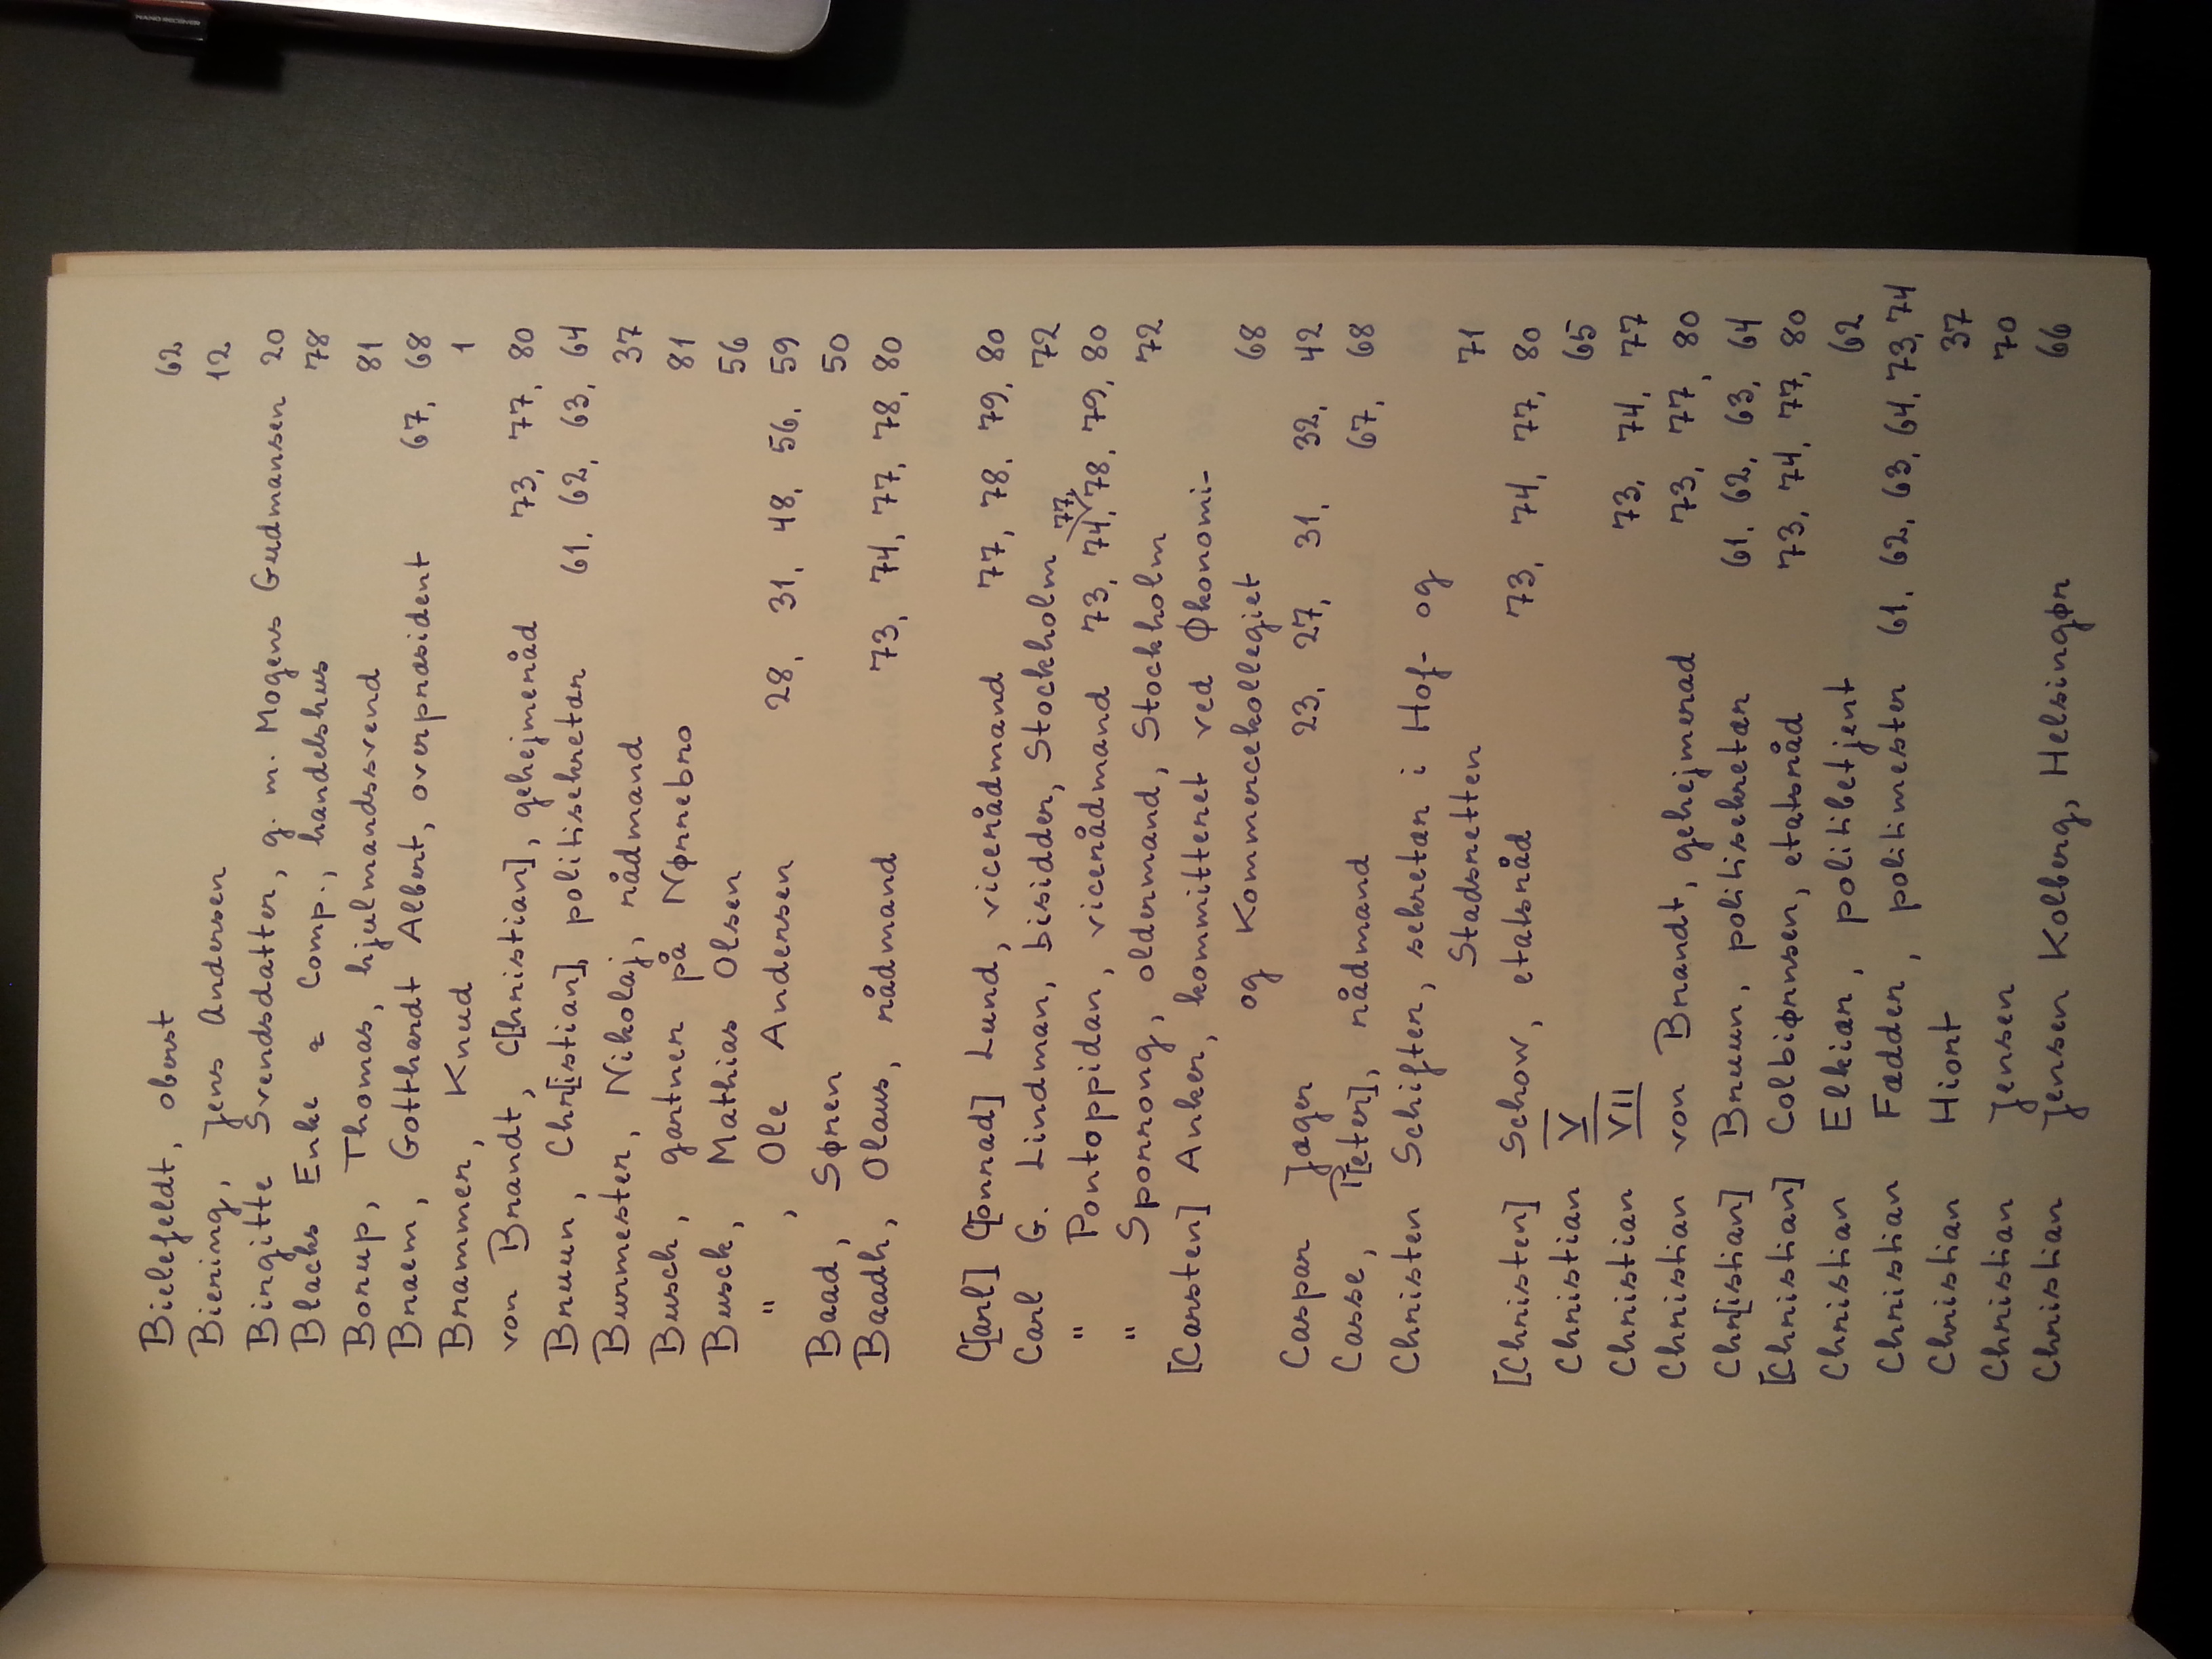 Bielefeldt, oberst 62
Biering, Jens Andersen 12
Birgitte Svendsdatter, g. m. Mogens Gudmansen 20
Blacks Enke & Comp., handelshus 78
Borup, Thomas, hjulmandssvend 81
Braem, Gotthardt Albert, overpræsident 67, 68
Brammer, Knud 1
von Brandt, C[hristian], gehejmeråd 73, 77, 80
Bruun, Chr[istian], politisekretær 61, 62, 63, 64
Burmester, Nikolaj, rådmand 37
Busch, gartner på Nørrebro 81
Busck, Mathias Olsen 56
" , Ole Andersen 28, 31, 48, 56, 59
Baad, Søren 50
Baadh, Olaus, rådmand 73, 74, 77, 78, 80
C[arl] C[onrad] Lund, vicerådmand 77, 78, 79, 80
Carl G. Lindman, bisidder, Stockholm 72
" Pontoppidan, vicerådmand 73, 74, 77, 78, 79, 80
" Sporrong, oldermand, Stockholm 72
[Carsten] Anker, kommitteret ved Økonomi-
og Kommercekollegiet 68
Caspar Jager 23, 27, 31, 32, 42
Casse, P[eter], rådmand 67, 68
Christen Schiften, sekretær i Hof- og
Stadsretten 71
[Christen] Schow, etatsråd 73, 74, 77, 80
Christian V 65
Christian VII 73, 74, 77
Christian von Brandt, gehejmeråd 73, 77, 80
Chr[istian] Bruun, politisekretær 61, 62, 63, 64
[Christian] Colbiørnsen, etatsråd 73, 74, 77, 80
Christian Elkiær, politibetjent 62
Christian Fædder, politimester 61, 62, 63, 64, 73, 74
Christian Hiort 37
Christian Jensen 70
Christian Jensen Kolberg, Helsingør 66